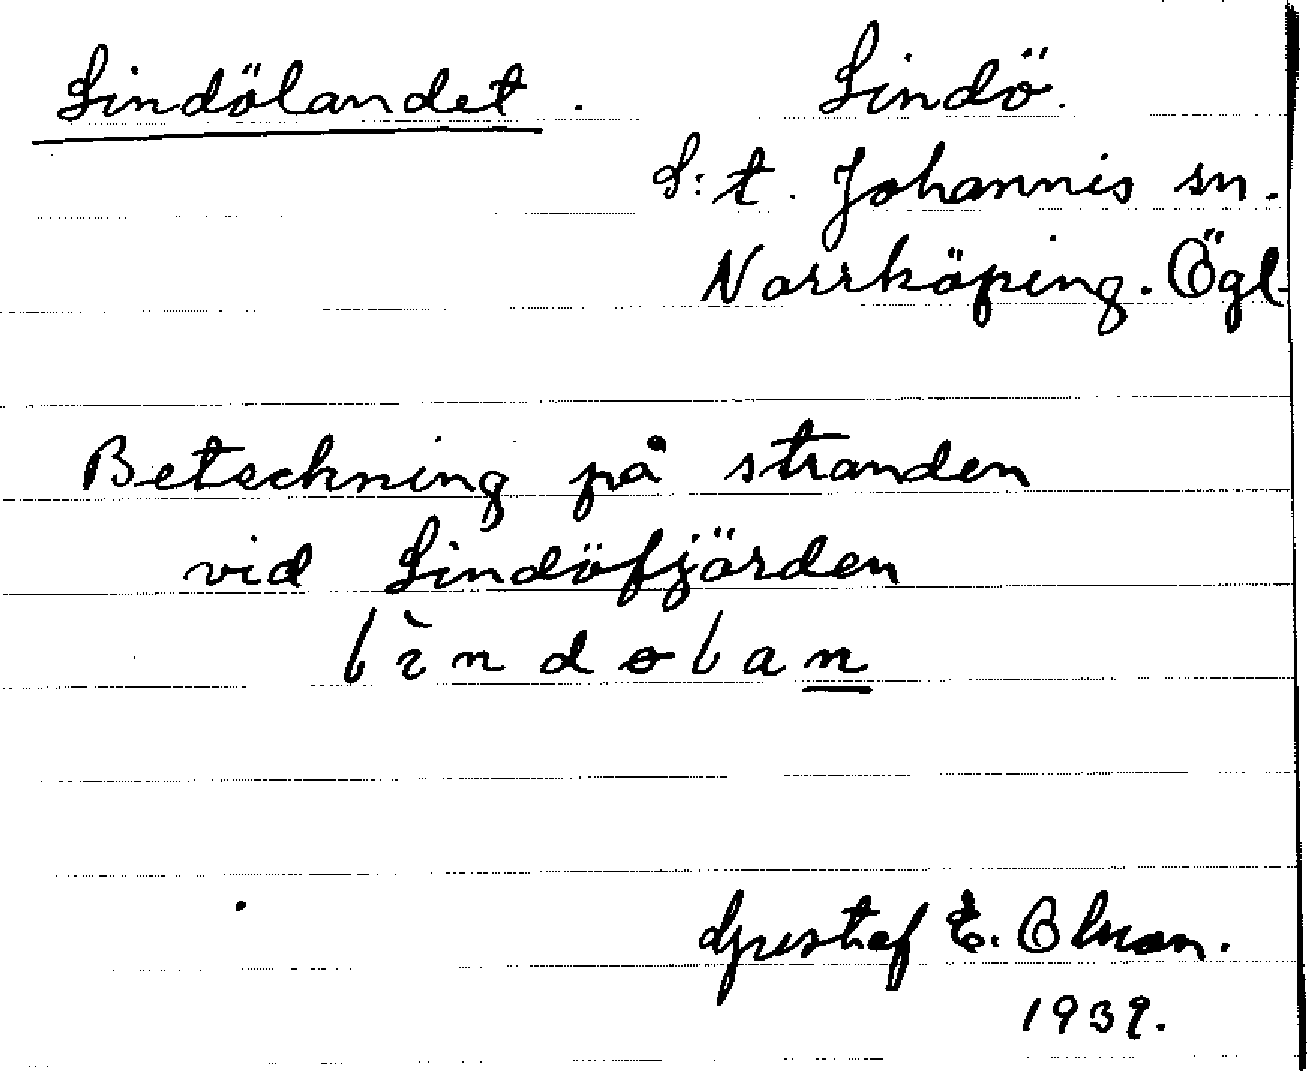 Lindölandet. Lindö.
S:t. Johannis sn.
Norrköping. Ögl.
Beteckning på stranden
vid Lindöfjärden
Gustaf E. Olsson.
1939.